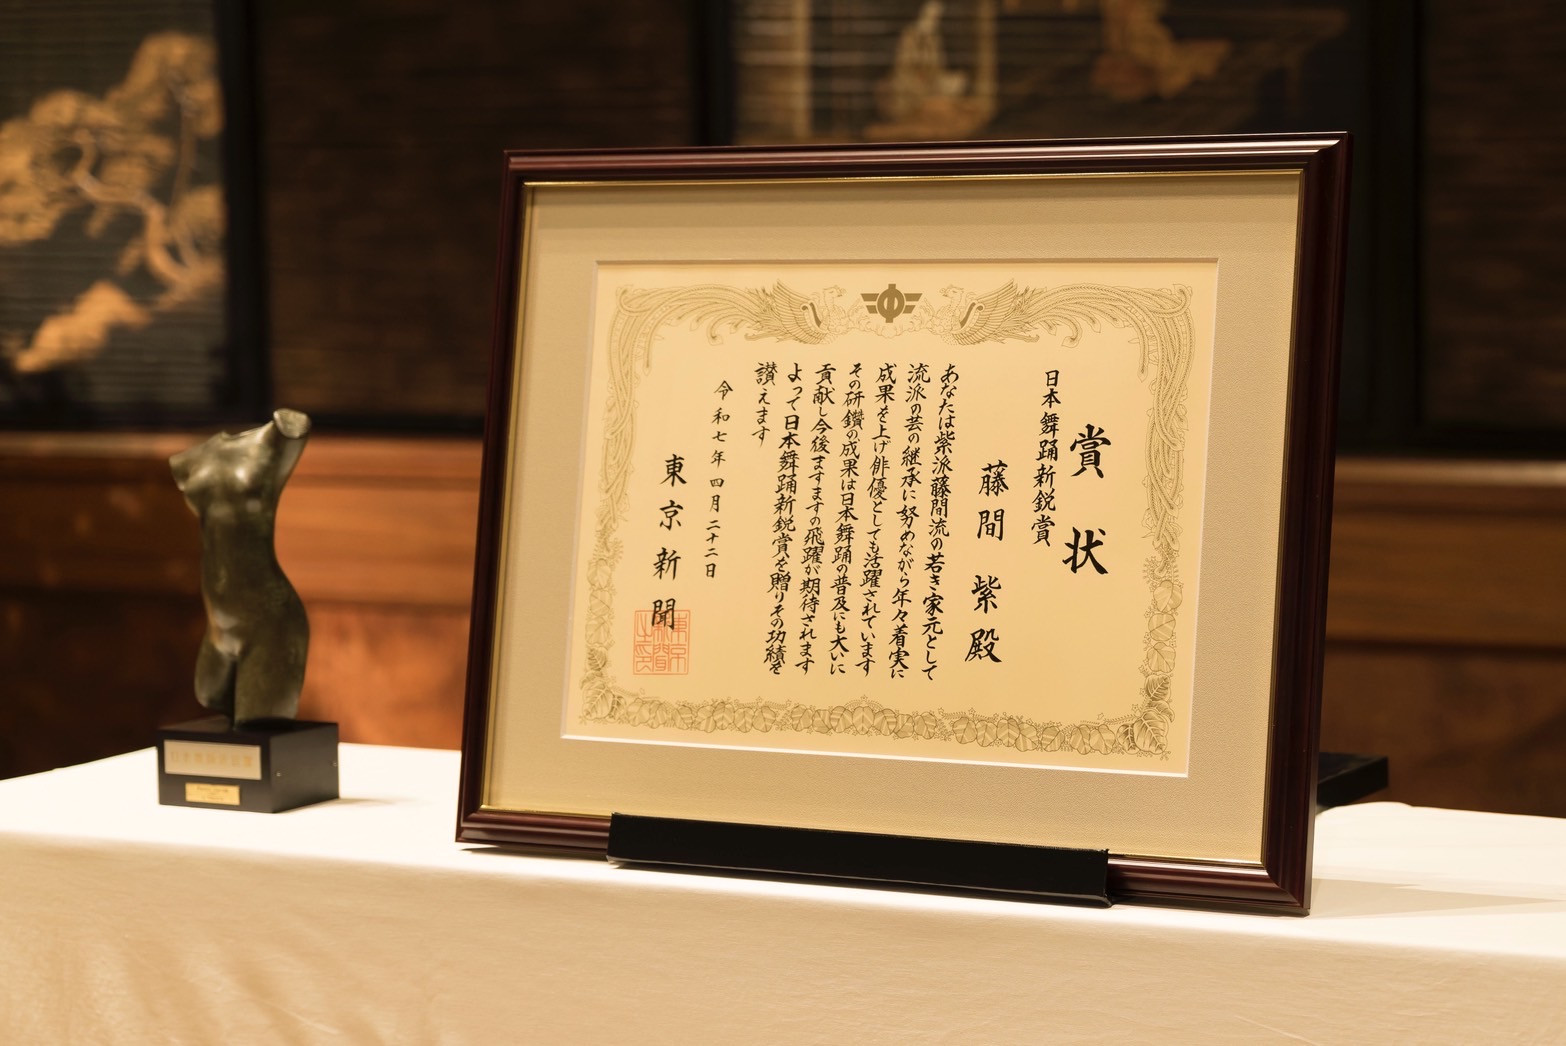 賞状
日本舞踊新鋭賞
藤間 紫殿
あなたは紫派藤間流の若き家元として
流派の芸の継承に努めながら年々着実に
成果を上げ俳優としても活躍されています
その研鑽の成果は日本舞踊の普及にも大いに
貢献し今後ますますの飛躍が期待されます
よって日本舞踊新鋭賞を贈りその功績を
讃えます
令和七年四月二十二日
東京新聞